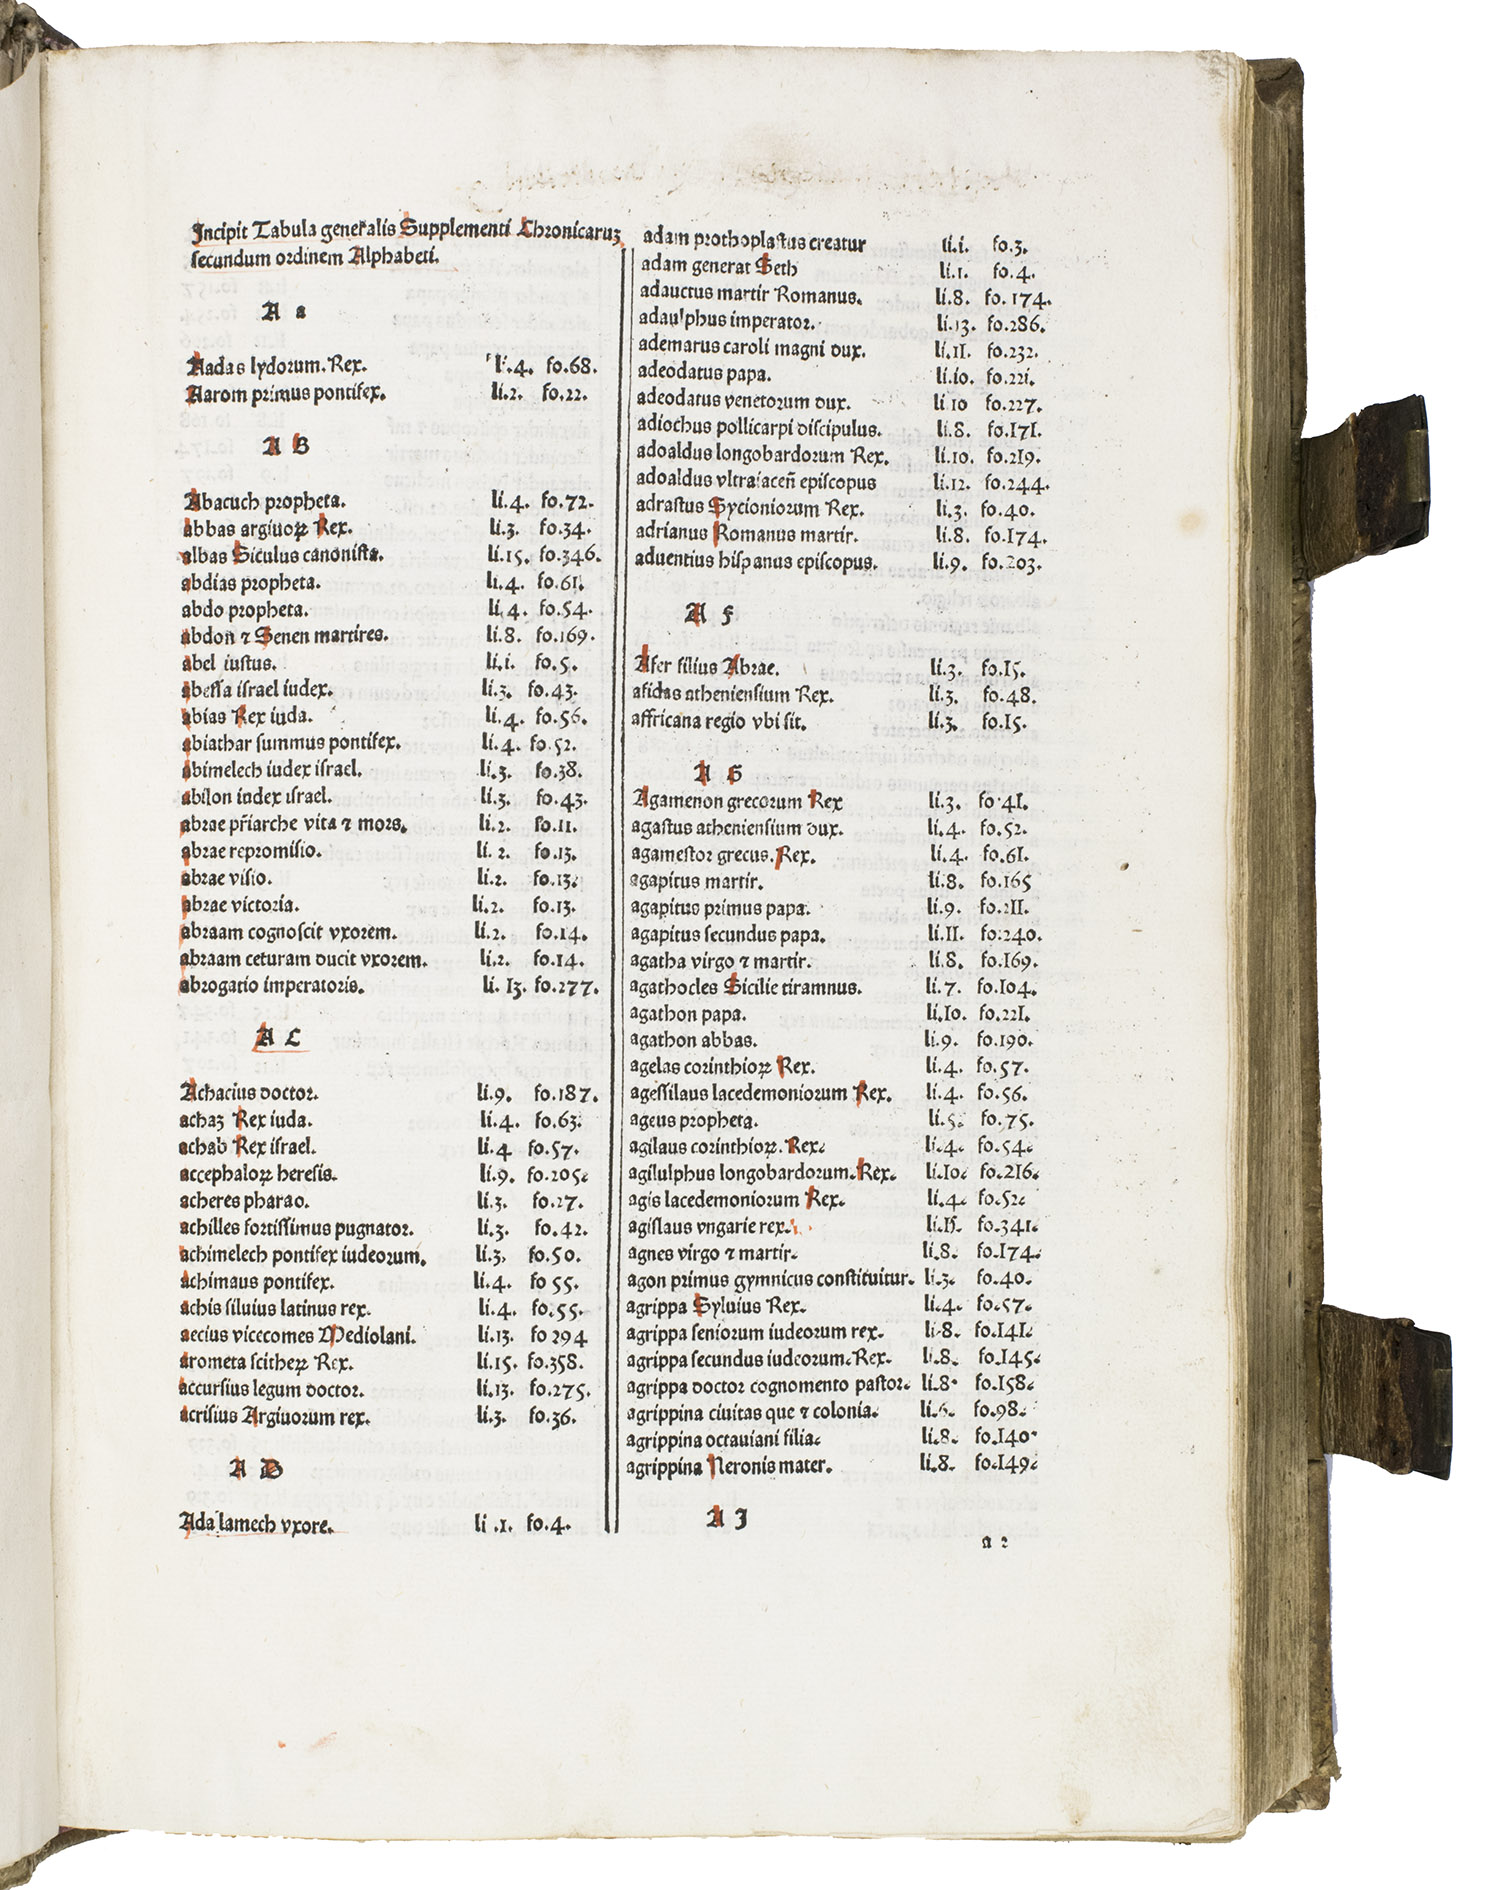 Incipit Tabula generalis Supplementi Chronicaruꝫ
secundum ordinem Alphabeti.
A a
Aadas lydorum. Rex. li.4. fo.68.
Aarom primus pontifex. li.2. fo.22.
A B
Abacuch propheta. li.4. fo.72.
abbas argiuoꝝ Rex. li.3. fo.34.
albas Siculus canonista. li.15. fo.346.
abdias propheta. li.4. fo.61.
abdo propheta. li.4. fo.54.
abdon ⁊ Senen martires. li.8. fo.169.
abel iustus. li.i. fo.5.
abessa israel iudex. li.3. fo.43.
abias Rex iuda. li.4. fo.56.
abiathar summus pontifex. li.4. fo.52.
abimelech iudex israel. li.3. fo.38.
abilon index israel. li.3. fo.43.
abrae pr̃iarche vita ⁊ mors. li.2. fo.11.
abrae repromisio. li.2. fo.13.
abrae visio. li.2. fo.13.
abrae victoria. li.2. fo.13.
abraam cognoscit vxorem. li.2. fo.14.
abraam ceturam ducit vxorem. li.2. fo.14.
abrogatio imperatoris. li.13. fo.277.
A C
Achacius doctor. li.9. fo.187.
achaz Rex iuda. li.4. fo.63.
achab Rex israel. li.4 fo.57.
accephaloꝝ heresis. li.9. fo.205.
acheres pharao. li.3. fo.27.
achilles fortissimus pugnator. li.3. fo.42.
achimelech pontifex iudeorum. li.3. fo.50.
achimaus pontifex. li.4. fo 55.
achis siluius latinus rex. li.4. fo.55.
aecius vicecomes Mediolani. li.13. fo 294
arometa scitheꝝ Rex. li.15. fo.358.
accursius legum doctor. li.13. fo.275.
acrisius Argiuorum rex. li.3. fo.36.
A D
Ada lamech vxore. li .1. fo.4.
adam prothoplastus creatur li.i. fo.3.
adam generat Seth li.1. fo.4.
adauctus martir Romanus. li.8. fo.174.
adaulphus imperator. li.13. fo.286.
ademarus caroli magni dux. li.11. fo.232.
adeodatus papa. li.io. fo.22i.
adeodatus venetorum dux. li 10 fo.227.
adiochus pollicarpi discipulus. li.8. fo.171.
adoaldus longobardorum Rex. li.10. fo.219.
adoaldus vltraiaceñ episcopus li.12. fo.244.
adrastus Sycioniorum Rex. li.3. fo.40.
adrianus Romanus martir. li.8. fo.174.
aduentius hispanus episcopus. li.9. fo.203.
A F
Afer filius Abrae. li.3. fo.15.
afidas atheniensium Rex. li.3. fo.48.
affricana regio vbi sit. li.3. fo.15.
A G
Agamenon grecorum Rex li.3. fo.41.
agastus atheniensium dux. li.4. fo.52.
agamestor grecus. Rex. li.4. fo.61.
agapitus martir. li.8. fo.165
agapitus primus papa. li.9. fo.211.
agapitus secundus papa. li.11. fo.240.
agatha virgo ⁊ martir. li.8. fo.169.
agathocles Sicilie tiramnus. li.7. fo.104.
agathon papa. li.10. fo.221.
agathon abbas. li.9. fo.190.
agelas corinthioꝝ Rex. li.4. fo.57.
agessilaus lacedemoniorum Rex. li.4. fo.56.
ageus propheta. li.5. fo.75.
agilaus corinthioꝝ. Rex. li.4. fo.54.
agilulphus longobardorum. Rex. li.10. fo.216.
agis lacedemoniorum Rex. li.4. fo.52.
agislaus vngarie rex. li.15. fo.341.
agnes virgo ⁊ martir. li.8. fo.174.
agon primus gymnicus constituitur. li.3. fo.40.
agrippa Syluius Rex. li.4. fo.57.
agrippa seniorum iudeorum rex. li.8. fo.141.
agrippa secundus iudeorum. Rex. li.8. fo.145.
agrippa doctor cognomento pastor. li.8. fo.158.
agrippina ciuitas que ⁊ colonia. li.6. fo.98.
agrippina octauiani filia. li.8. fo.140.
agrippina Neronis mater. li.8. fo.149.
A I
a 2